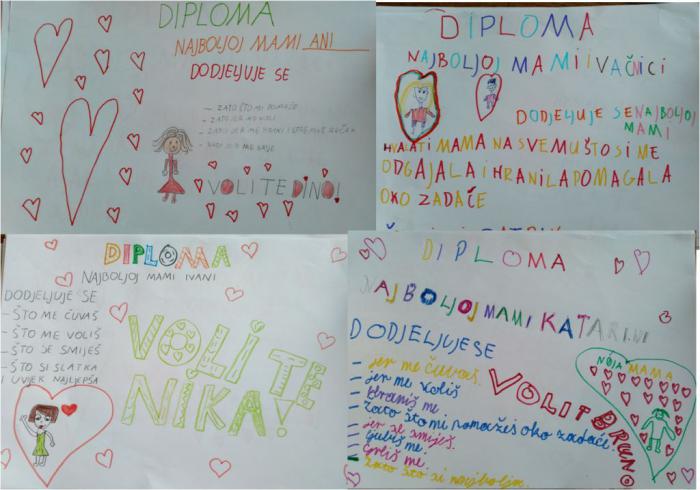 DIPLOMA
NAJBOLJOJ MAMI ANI
DODJELJUJE SE
- ZATO ŠTO MI POMAŽE
- ZATO JER ME VOLI
- ZATO JER ME HRANI I SPREMA
VOLI TE DINO!
DIPLOMA
NAJBOLJOJ MAMI IVAČNICI
DODJELJUJE SE NAJBOLJOJ
MAMI
HVALATI MAMA NA SVEMU ŠTO SI ME
ODGAJALA I HRANILA POMAGALA
OKO ZADAĆE
DIPLOMA
NAJBOLJOJ MAMI IVANI
DODJELJUJE SE
- ŠTO ME ČUVAŠ
- ŠTO ME VOLIŠ
- ŠTO SE SMIJEŠ
- ŠTO SI SLATKA
I UVIJEK NAJLJEPŠA
VOLI TE
NIKA!
DIPLOMA
NAJBOLJOJ MAMI KATARINI
DODJELJUJE SE
- jer me čuvaš.
- jer me voliš
- Hraniš me.
- Zato što mi pomažeš oko zadaće.
- jer se smiješ.
- Ljubiš me.
- Grliš me.
- Zato što si najbolja.
VOLI T BRUNO
MOJA MAMA